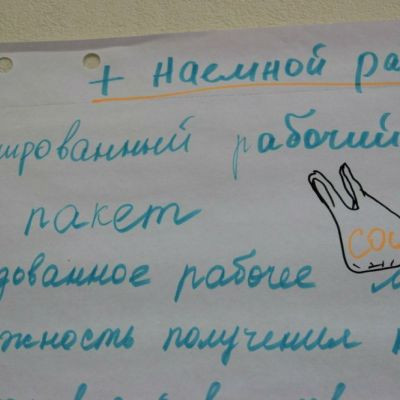 + наемной ра
ированный рабочий
пакет
соц
дованное рабочее м
жность получения